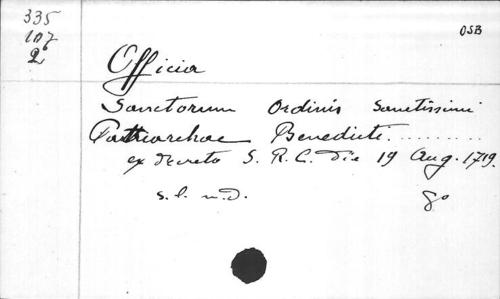 335
107
2
OSB
Officia
Sanctorum Ordinis Sanctissimi
Patriarchae Benedicti.........
ex decreto S. R. C. die 19 Aug. 1719.
s. l. n. d. 8o